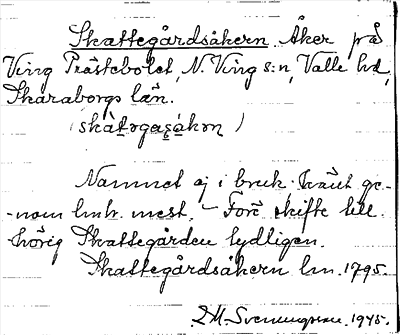 Skattegårdsåkern. Åker på
Ving Prästebolet, N. Ving s:n, Valle hd,
Skaraborgs län.
Namnet ej i bruk; känt ge-
-nom lmh. mest. – Före skifte till-
hörig Skattegården tydligen.
Skattegårdsåkern lm. 1795.
1945.